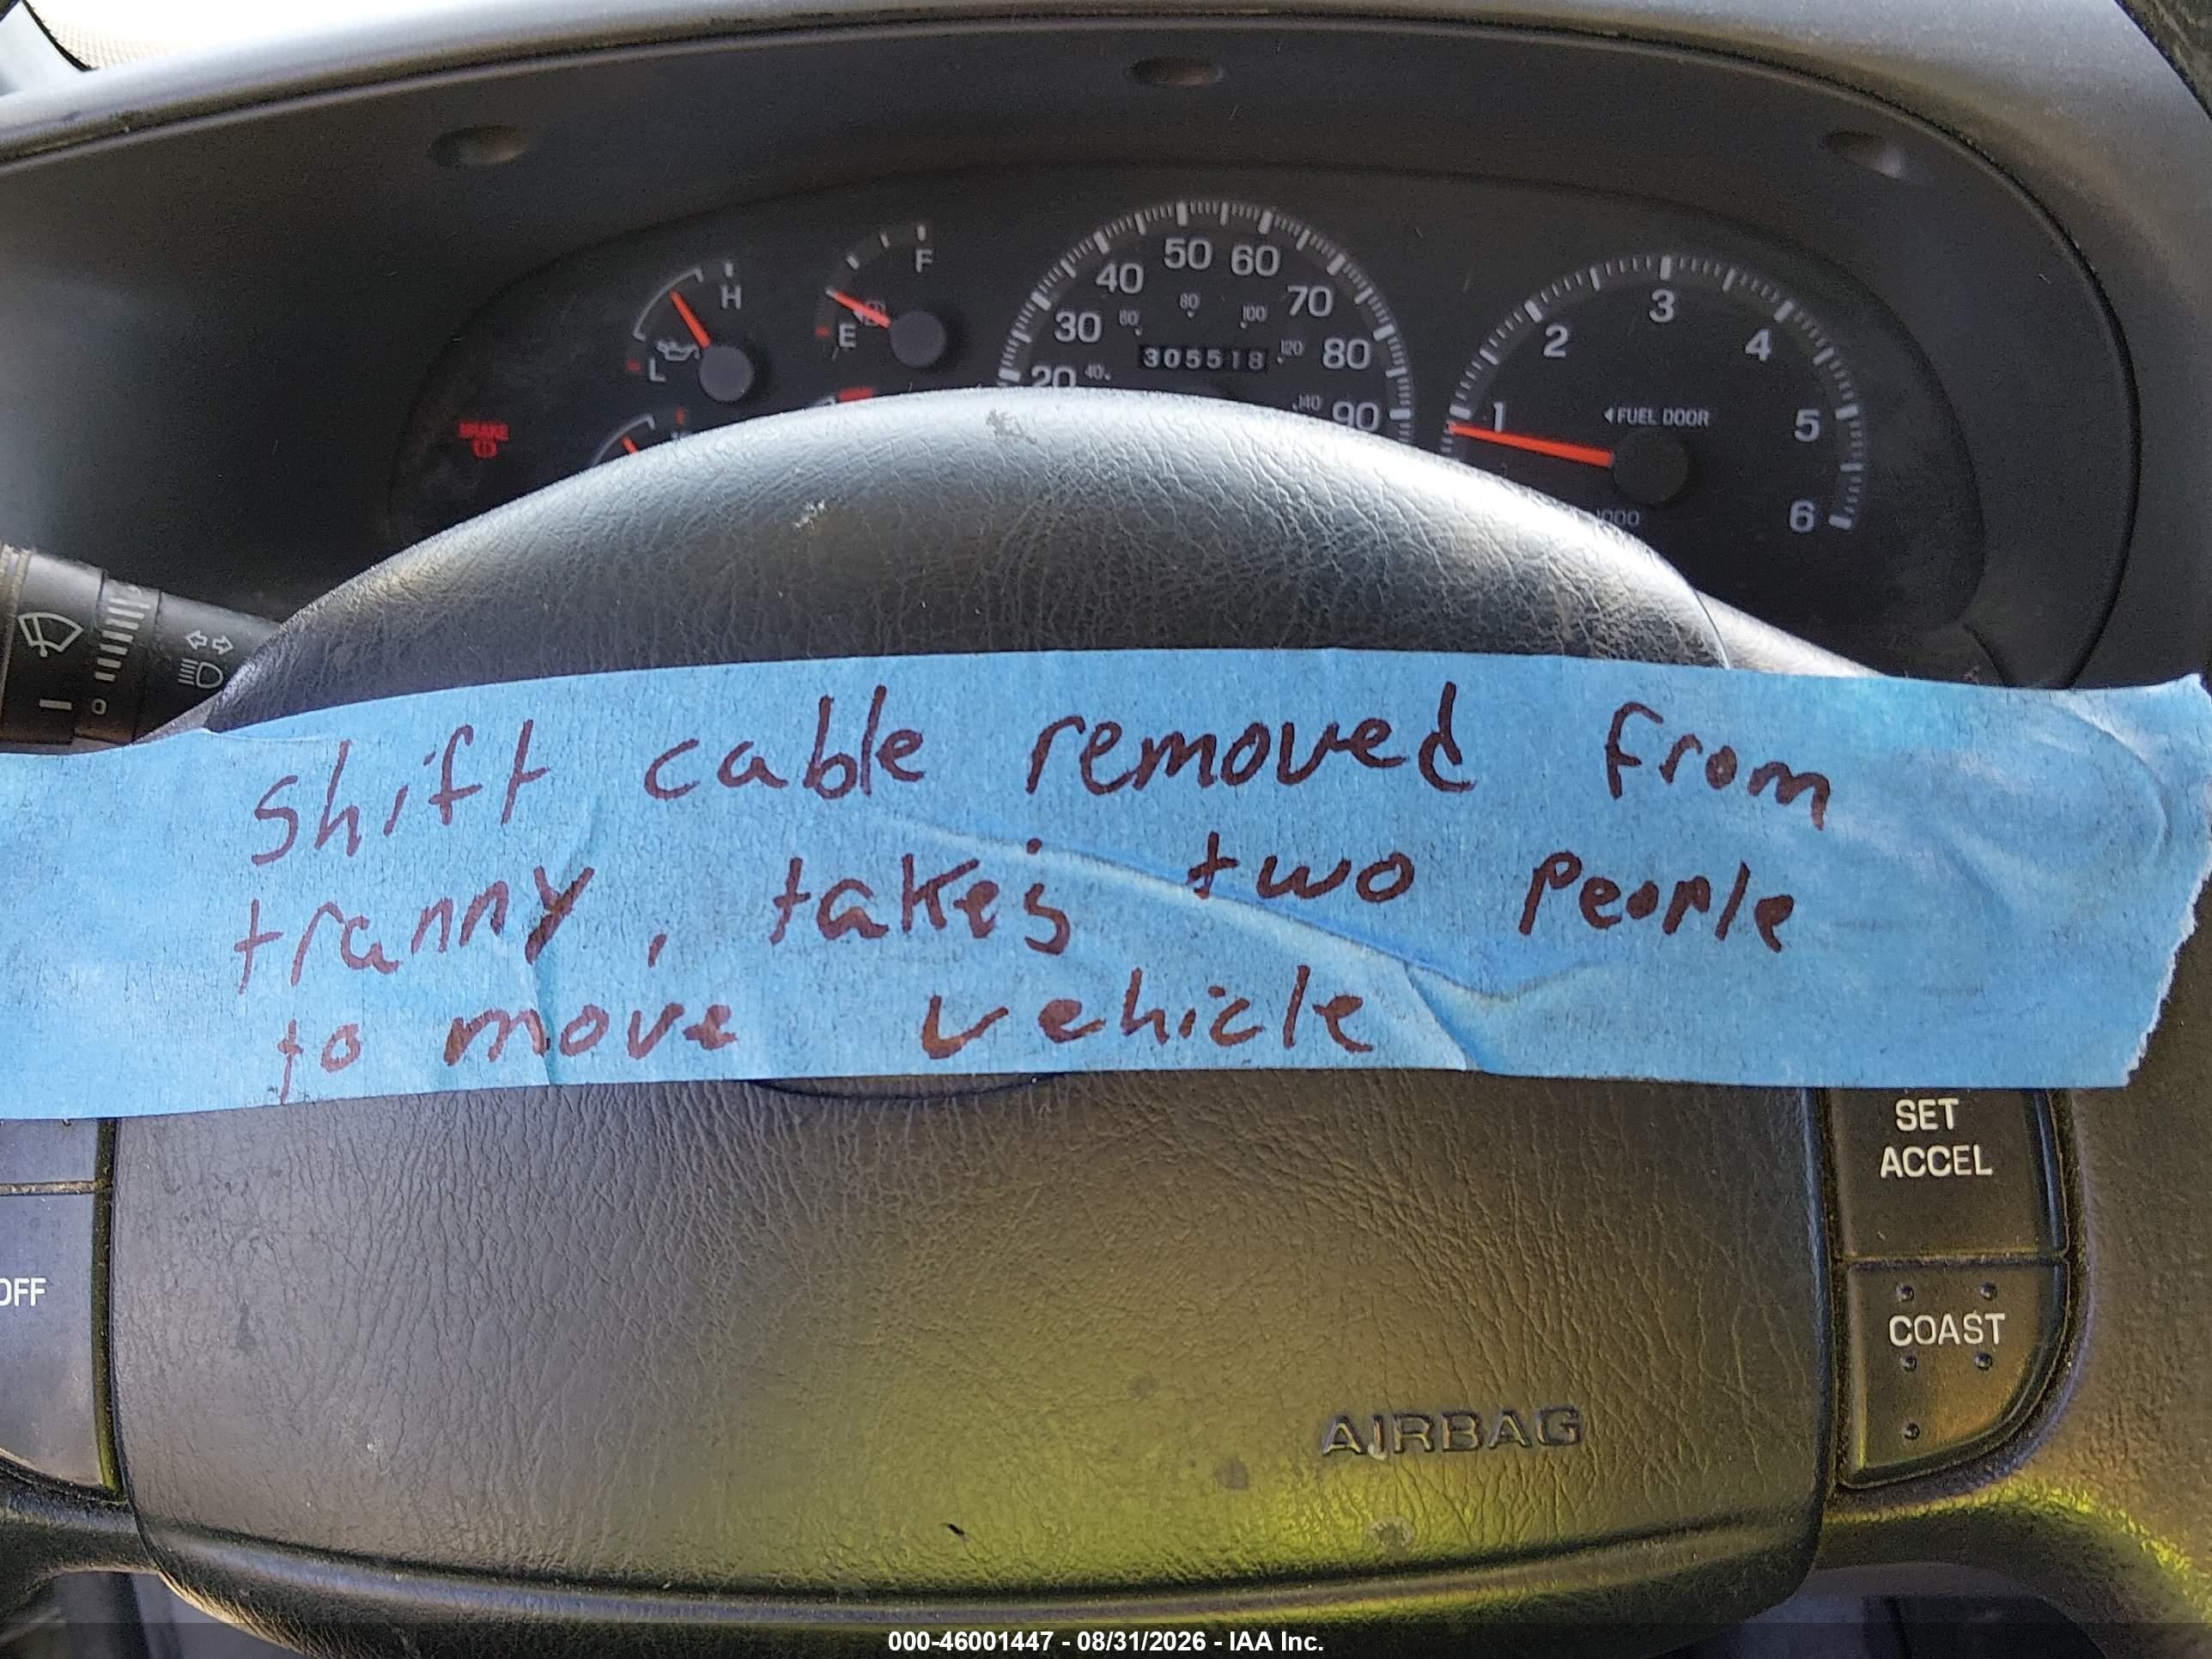 H
L
F
E
20 30 40 50 60 70 80 90
40 60 80 100 120 140
305518
BRAKE
1 2 3 4 5 6
FUEL DOOR
1000
Shift cable removed from
tranny, takes two people
to move vehicle
SET
ACCEL
OFF
COAST
AIRBAG
000-46001447 - 08/31/2026 - IAA Inc.